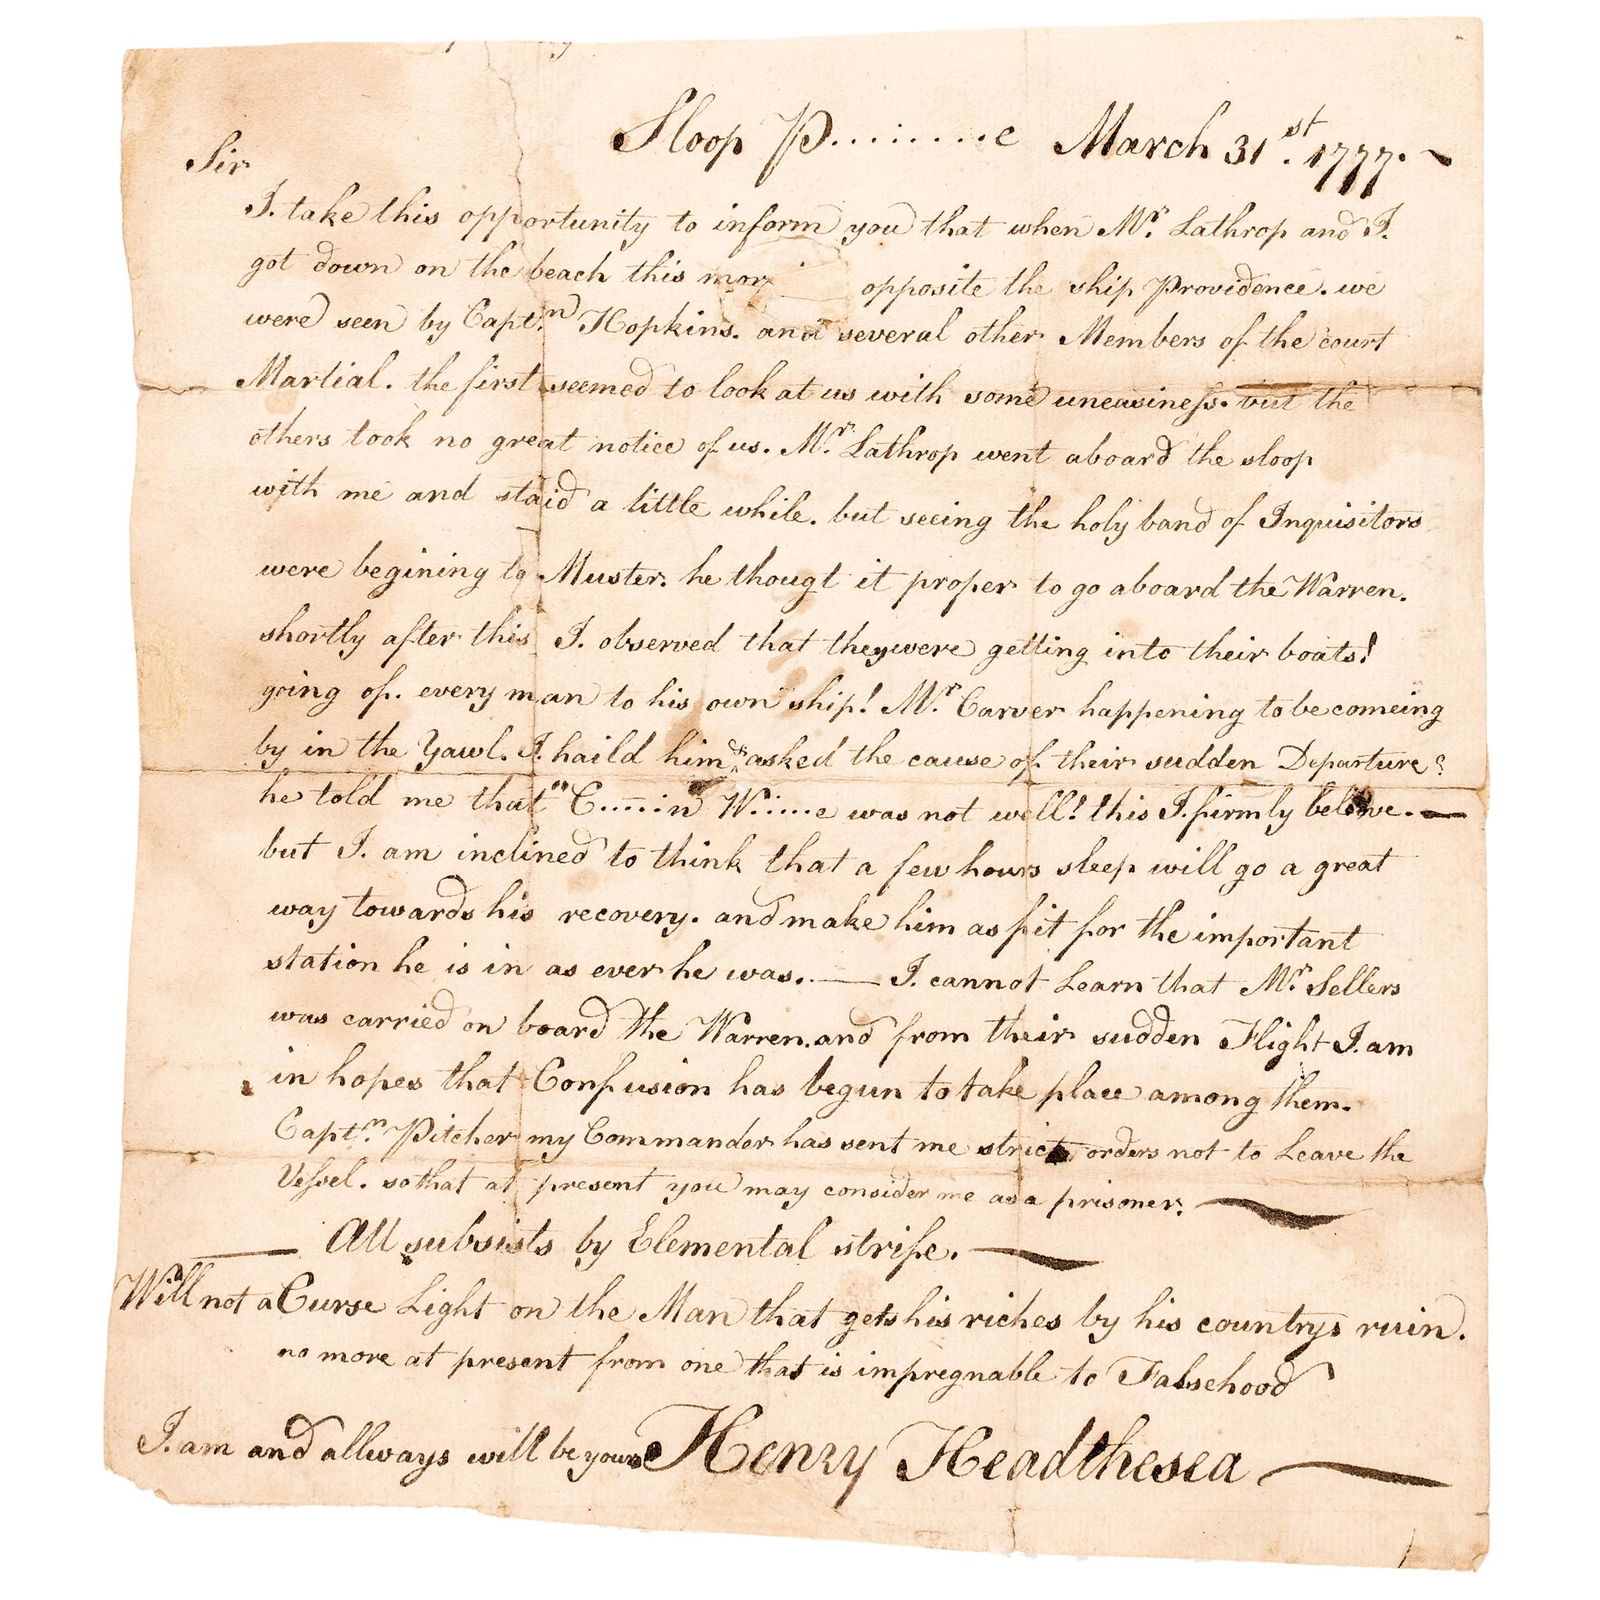 Sloop P.........e March 31st. 1777.
Sir
I. take this opportunity to inform you that when Mr. Lathrop and I.
got down on the beach this mor opposite the ship Providence. we
were seen by Captn. Hopkins. and several other Members of the court
Martial. the first seemed to look at us with some uneasiness. but the
others took no great notice of us. Mr. Lathrop went aboard the sloop
with me and staid a little while. but seeing the holy band of Inquisitors
were begining to Muster. he thougt it proper to go aboard the Warren.
shortly after this I. observed that they were getting into their boats!
going of. every man to his own ship! Mr. Carver happening to be comeing
by in the Yawl. I. haild him & asked the cause of their sudden Departure?
he told me that C.....in W.....e was not well! this I. firmly beleive.—
but I. am inclined to think that a few hours sleep will go a great
way towards his recovery. and make him as fit for the important
station he is in as ever he was.— I. cannot Learn that Mr. Sellers
was carried on board the Warren. and from their sudden Flight I. am
in hopes that Confusion has begun to take place among them.
Captn. Pitcher my Commander has sent me strict orders not to Leave the
Vessel. so that at present you may consider me as a prisoner.—
— All subsists by Elemental strife.—
Will not a Curse Light on the Man that gets his riches by his countrys ruin.
no more at present from one that is impregnable to Falsehood
I. am and allways will be yours Henry Headthesea—